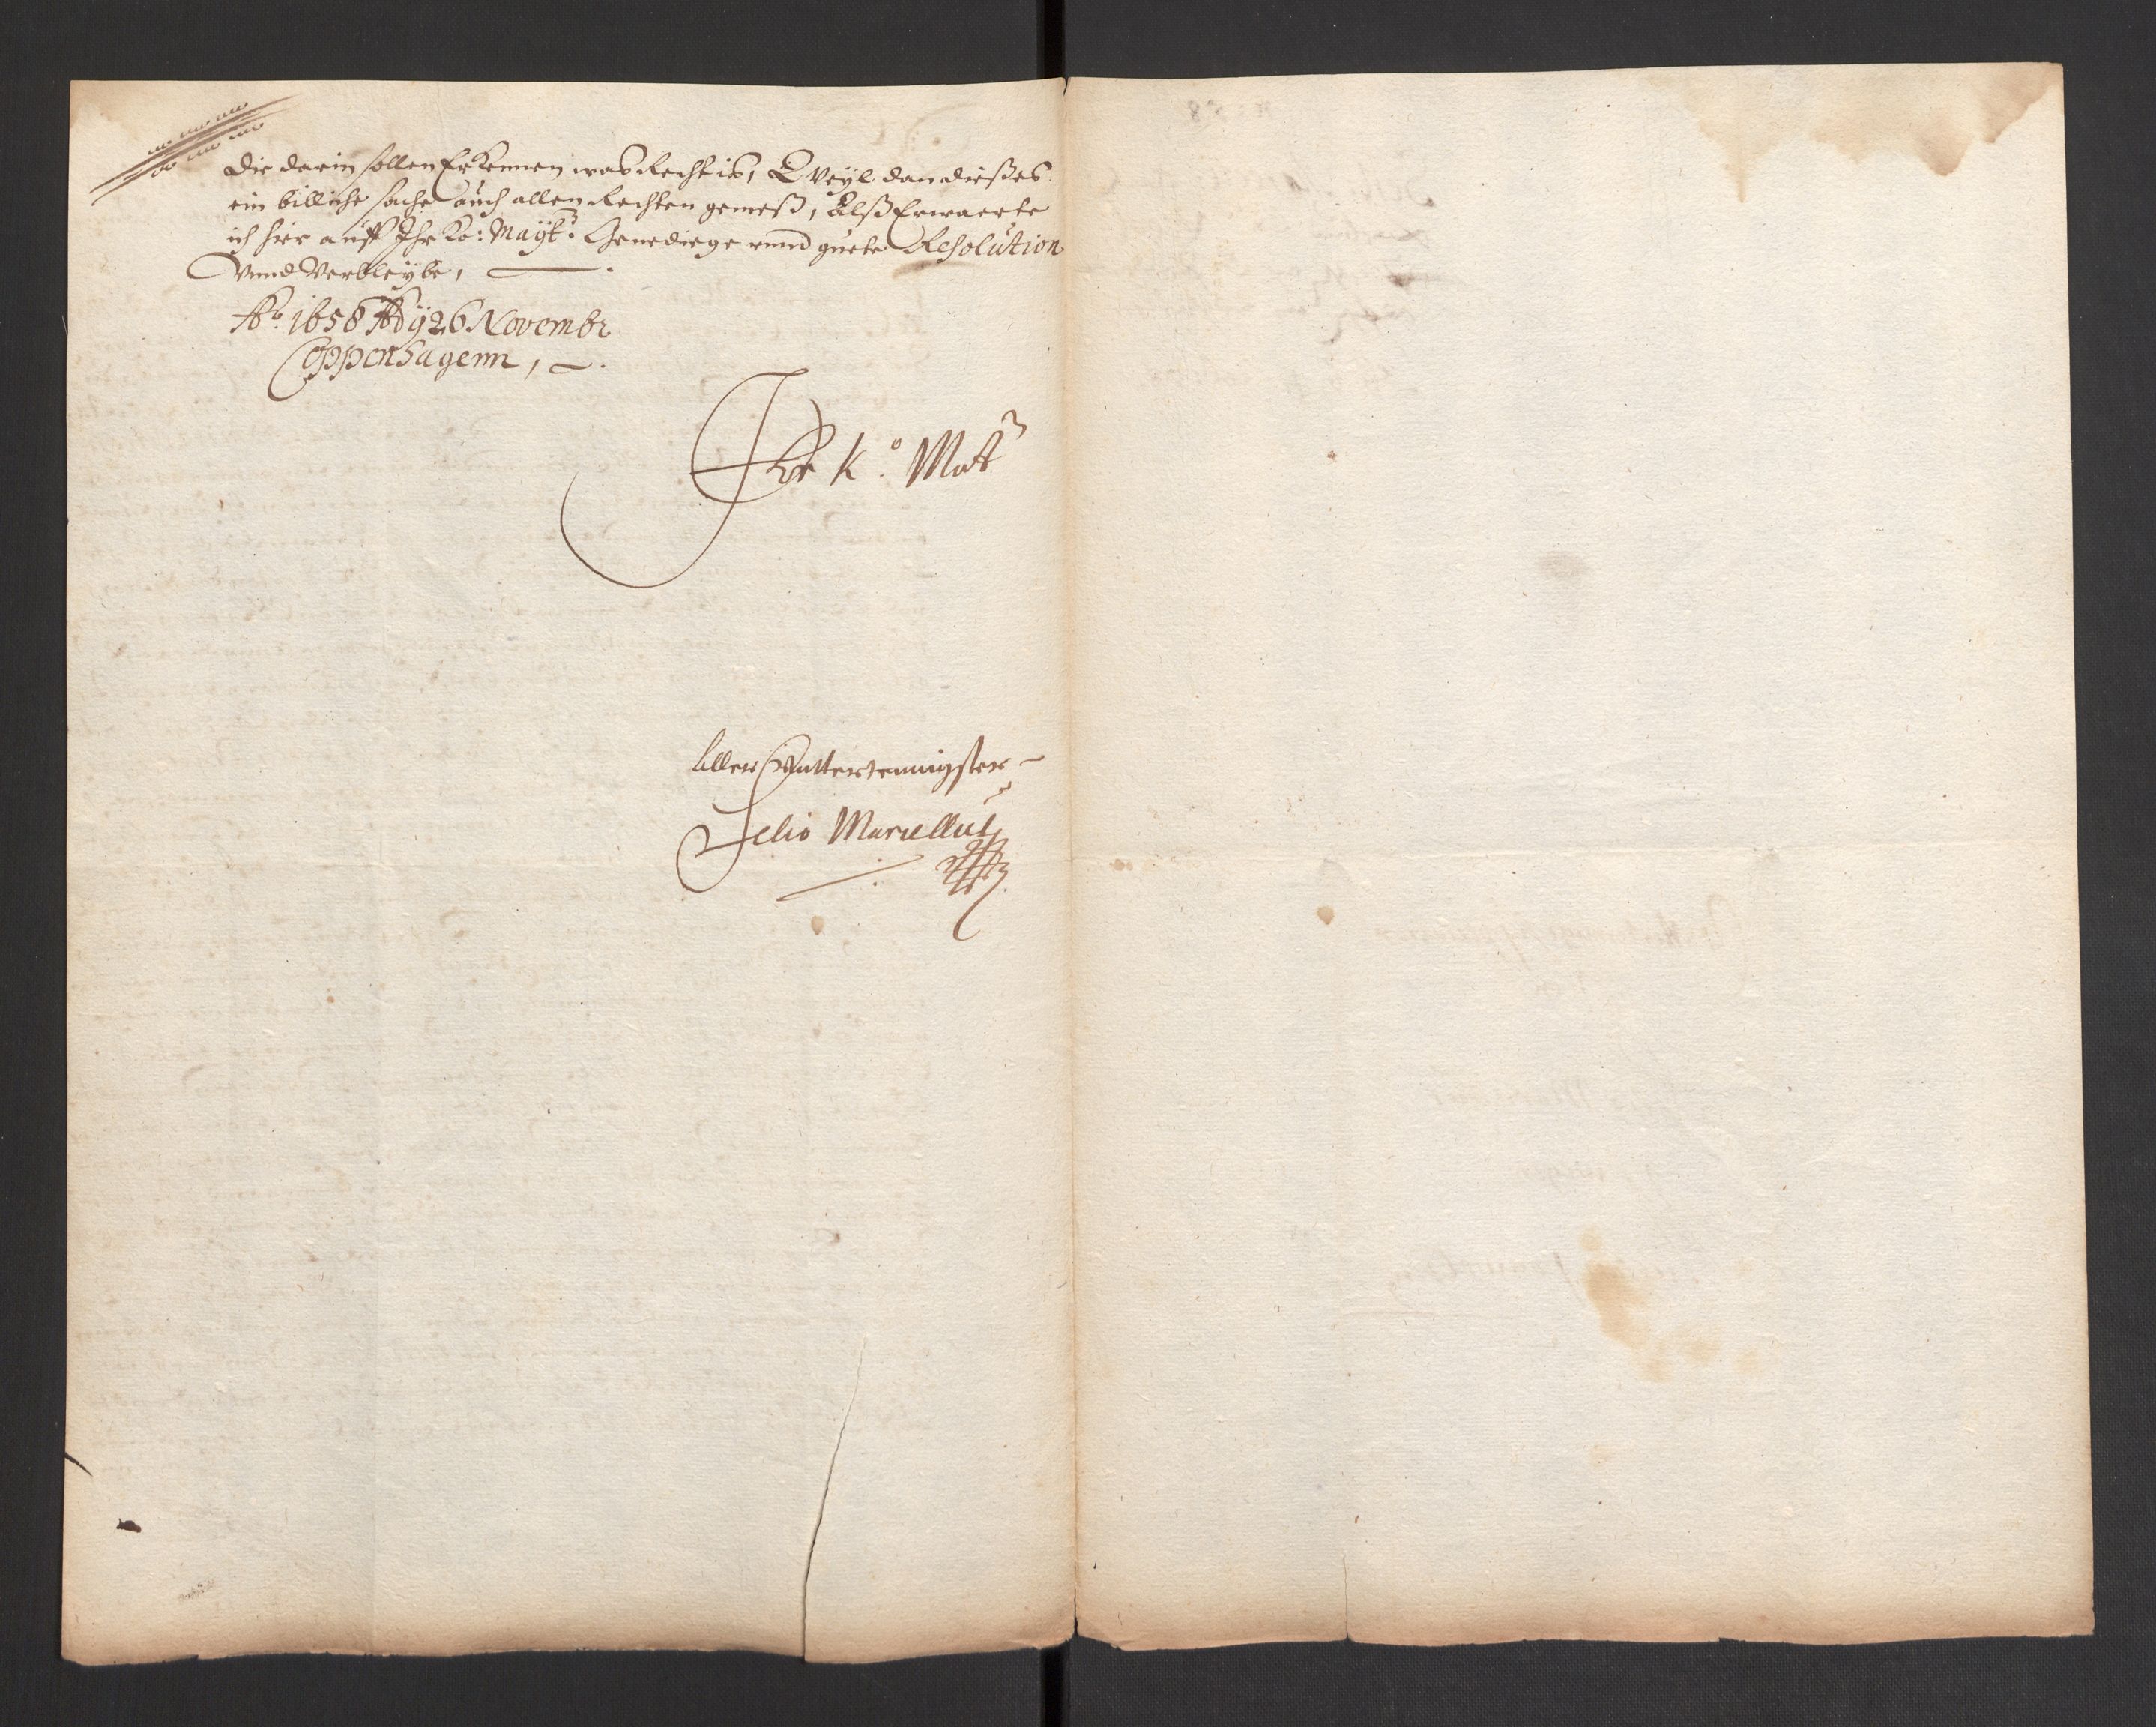 die darin sollen Erkennen was Recht is, Weÿl dan dießes
ein billiche sache auch allen Rechten gemeß, Alß Erwaerte
ich hier auff Ihr Ko: Maÿtt. Genediege unnd guete Resolution
Unnd Verbleÿbe,
Ao. 1658 Adÿ 26 Novembr
Coppenhagenn,
Ihr K. Matt
Aller Untterteenigster
Selio Mariellut